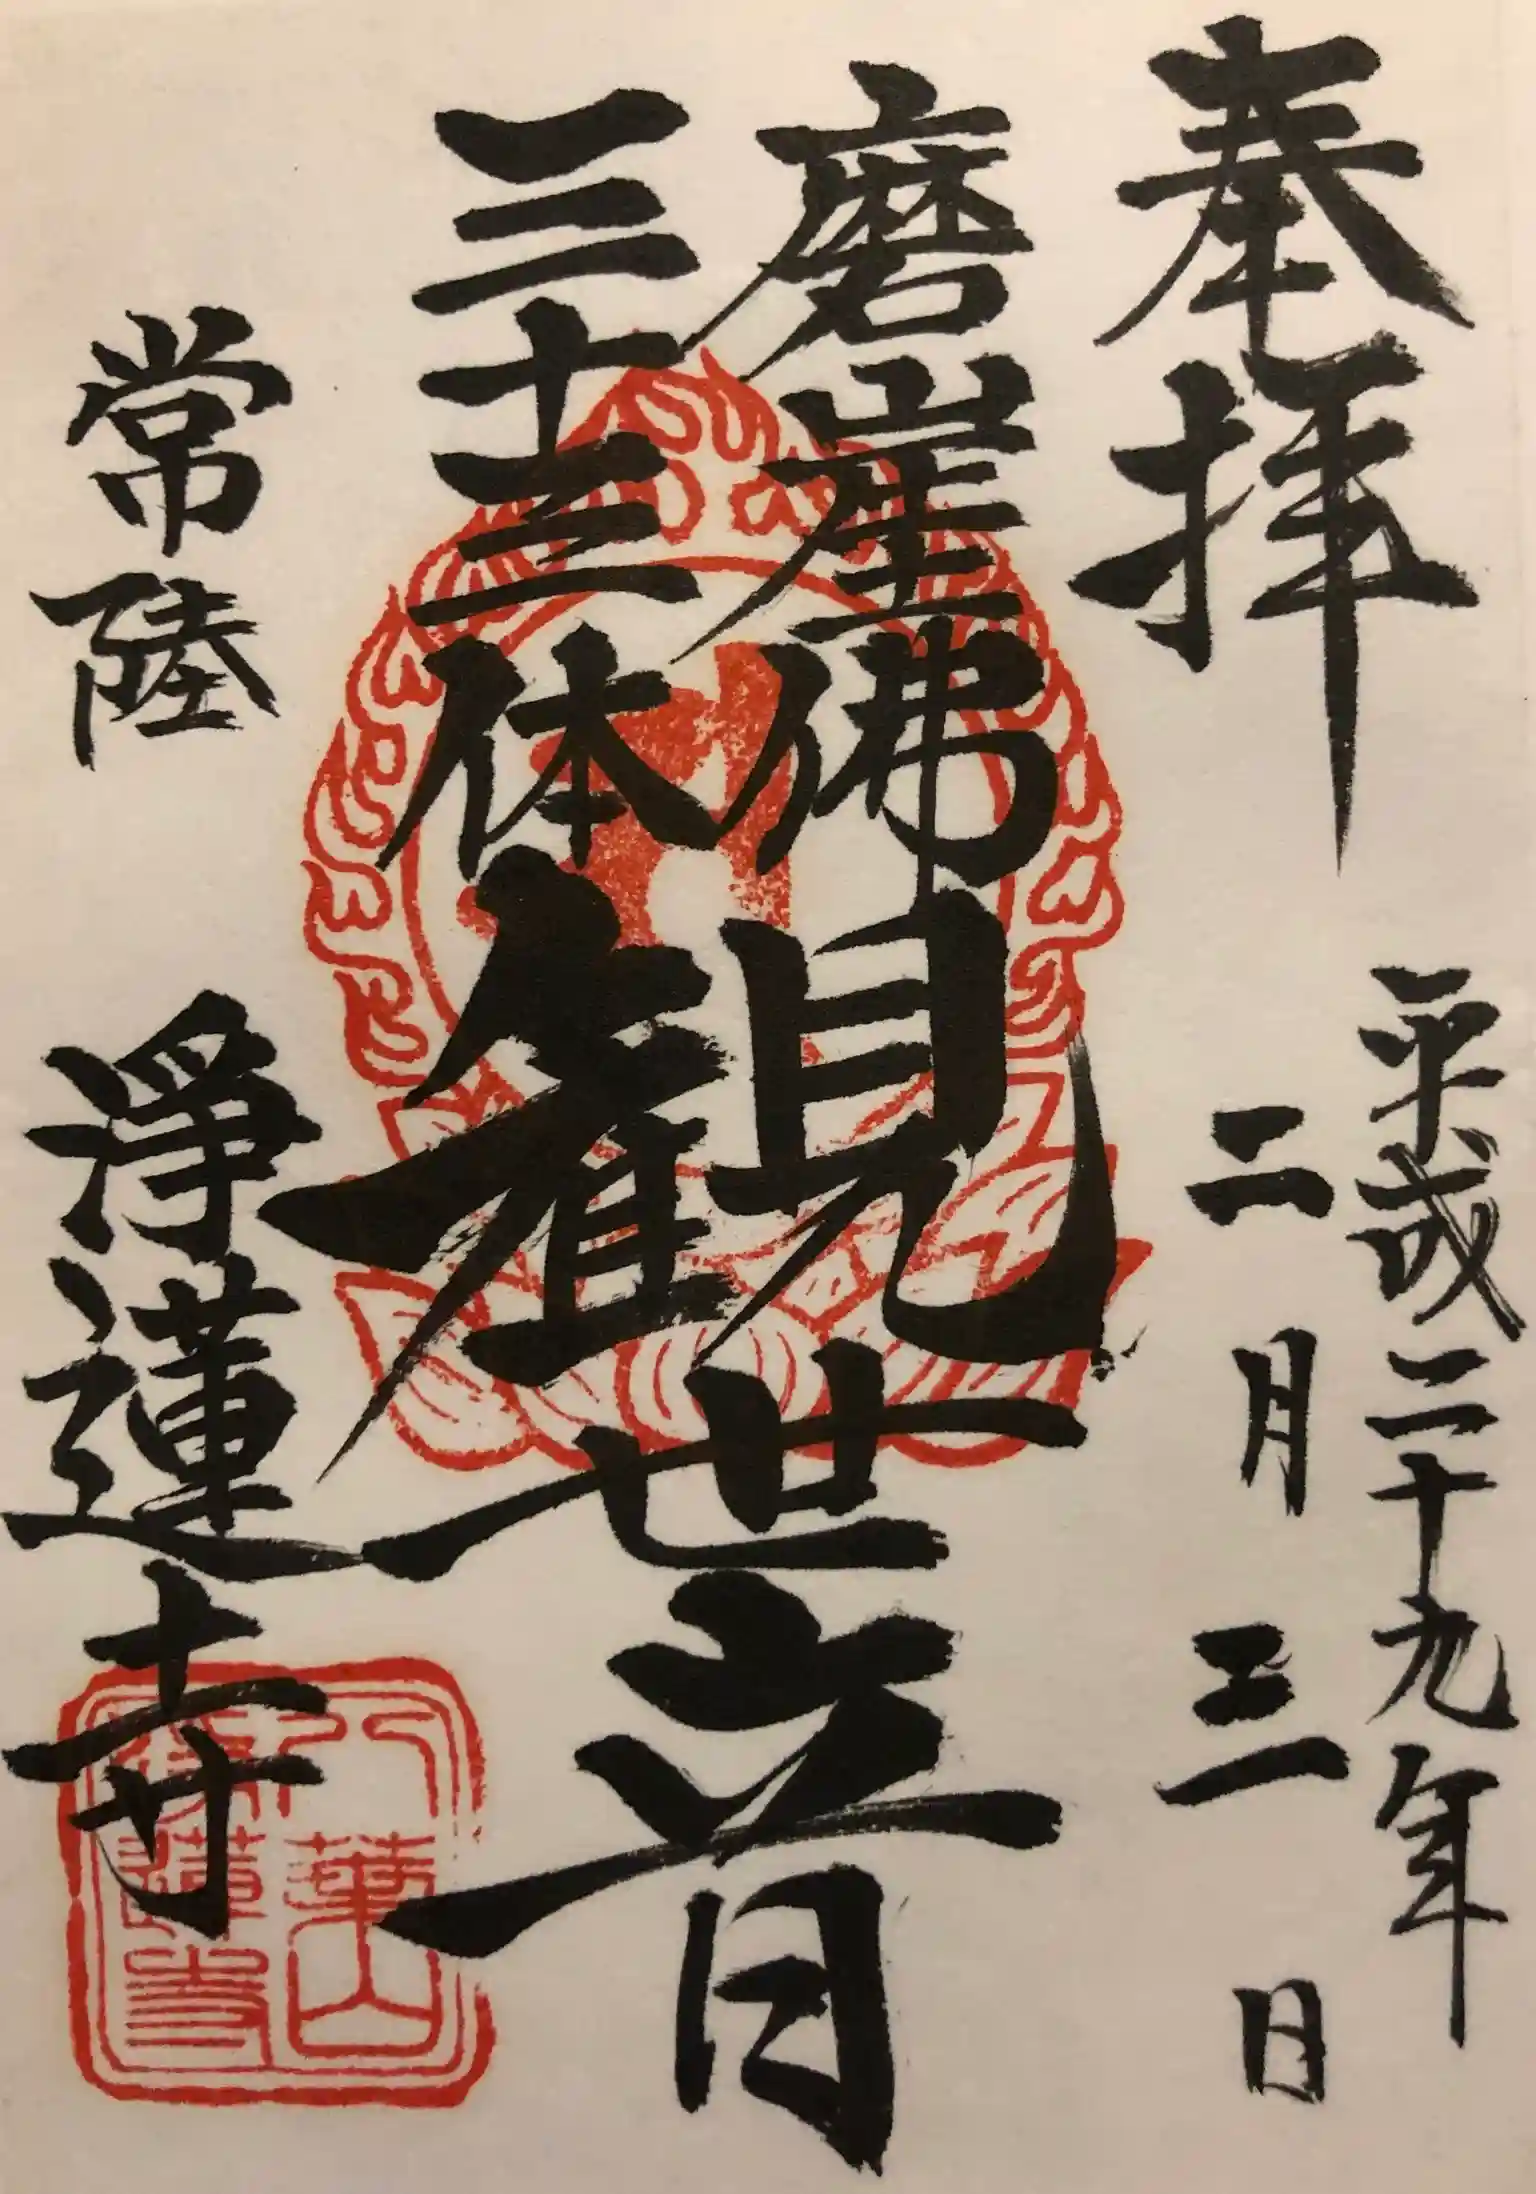 奉拝
平成二十九年
二月三日
磨崖佛
三十三体
観世音
常陸
浄蓮寺
八葉山
浄蓮寺